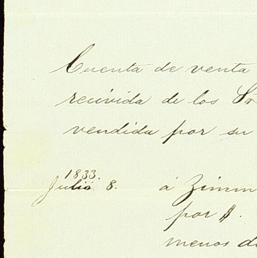 Cuenta de venta
recivida de los
vendida por su
1833.
Julio 8. á Zimm
por $.
menos d